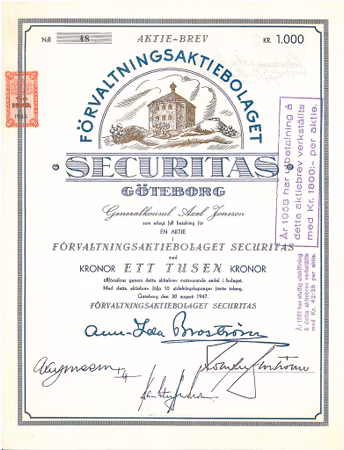 Nr 48 AKTIE-BREV KR. 1.000
FÖRVALTNINGSAKTIEBOLAGET
SECURITAS
GÖTEBORG
Generalkonsul Axel Jonsson
som erlagt full betalning för
EN AKTIE
i
FÖRVALTNINGSAKTIEBOLAGET SECURITAS
med
KRONOR ETT TUSEN KRONOR
tillförsäkras genom detta aktiebrev motsvarande andel i bolaget.
Med detta aktiebrev följa 10 utdelningskuponger jämte talong.
Göteborg den 30 augusti 1947.
FÖRVALTNINGSAKTIEBOLAGET SECURITAS
Ann-Ida Broström
År 1958 har utbetalning å
detta aktiebrev verkställts
med Kr. 1800:- per aktie.
År 1981 har slutlig utskiftning
å detta aktiebrev verkställts
med Kr. 42:55 per aktie.